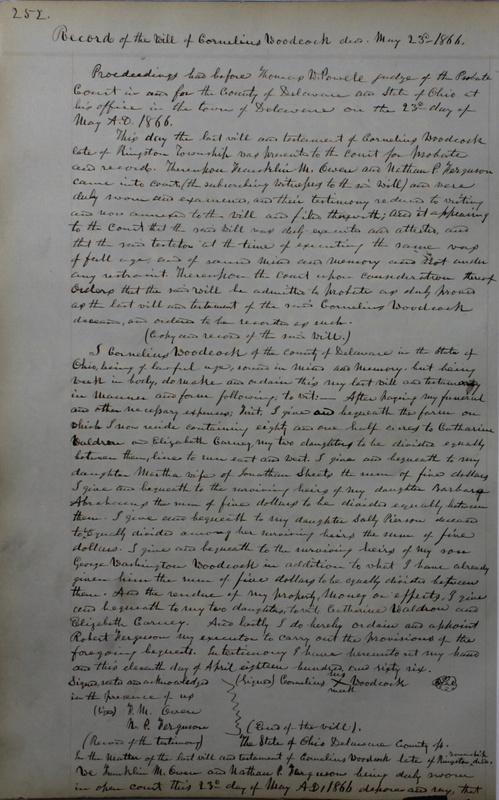 252.
Record of the Will of Cornelius Woodcock decd. May 23d 1866.
Proceedings had before Thomas W. Powell judge of the Probate
Court in and for the County of Delaware and State of Ohio at
his office in the town of Delaware on the 23d day of
May A.D. 1866.
This day the last will and testament of Cornelius Woodcock
late of Kingston Township was presented to the Court for probate
and record. Thereupon Franklin M. Owen and Nathan P. Ferguson
came into Court (the subscribing witnesses to the said will) and were
duly sworn and examined, and their testimony reduced to writing
and now annexed to the will and filed therewith; And it appearing
to the Court that the said will was duly executed and attested, and
that the said testator at the time of executing the same was
of full age, and of sound mind and memory and not under
any restraint. Thereupon the Court upon consideration thereof
Orders that the said will be admitted to probate as duly proved
as the last will and testament of the said Cornelius Woodcock
deceased, and ordered to be recorded as such.
(Copy and record of the said Will.)
I Cornelius Woodcock of the county of Delaware in the State of
Ohio, being of lawful age, sound in mind and memory, but being
weak in body, do make and ordain this my last will and testimony
in manner and form following, to wit:— After paying my funeral
and other necessary expenses; First, I give and bequeath the farm on
which I now reside containing eighty and one half acres to Catharine
Waldron and Elizabeth Carney, my two daughters to be divided equally
between them, lines to run east and west. I give and bequeath to my
daughter Martha wife of Jonathan Sheets the sum of five dollars
I give and bequeath to the surviving heirs of my daughter Barbara
Abrahams the sum of five dollars to be divided equally between
them. I give and bequeath to my daughter Sally Pierson deceased
to equally divided among her surviving heirs the sum of five
dollars. I give and bequeath to the surviving heirs of my son
George Washington Woodcock in addition to what I have already
given him the sum of five dollars to be equally divided between
them. And the residue of my property, Money or effects, I give
and bequeath to my two daughters, to wit Catharine Waldron and
Elizabeth Carney. And lastly I do hereby ordain and appoint
Robert Ferguson my executor to carry out the provisions of the
foregoing bequests. In testimony I have hereunto set my hand
and this eleventh day of April eighteen hundred and sixty six.
Signed, seald and acknowledged (Signed) Cornelius his X mark Woodcock
in the presence of us
F. M. Owen
N. P. Ferguson (End of the will).
(Record of the testimony) The State of Ohio Delaware County ss.
In the Matter of the last will and testament of Cornelius Woodcock late of Kingston township, decd.
We Franklin M. Owen and Nathan P. Ferguson being duly sworn
in open court this 23d day of May A.D. 1866 depose and say, that